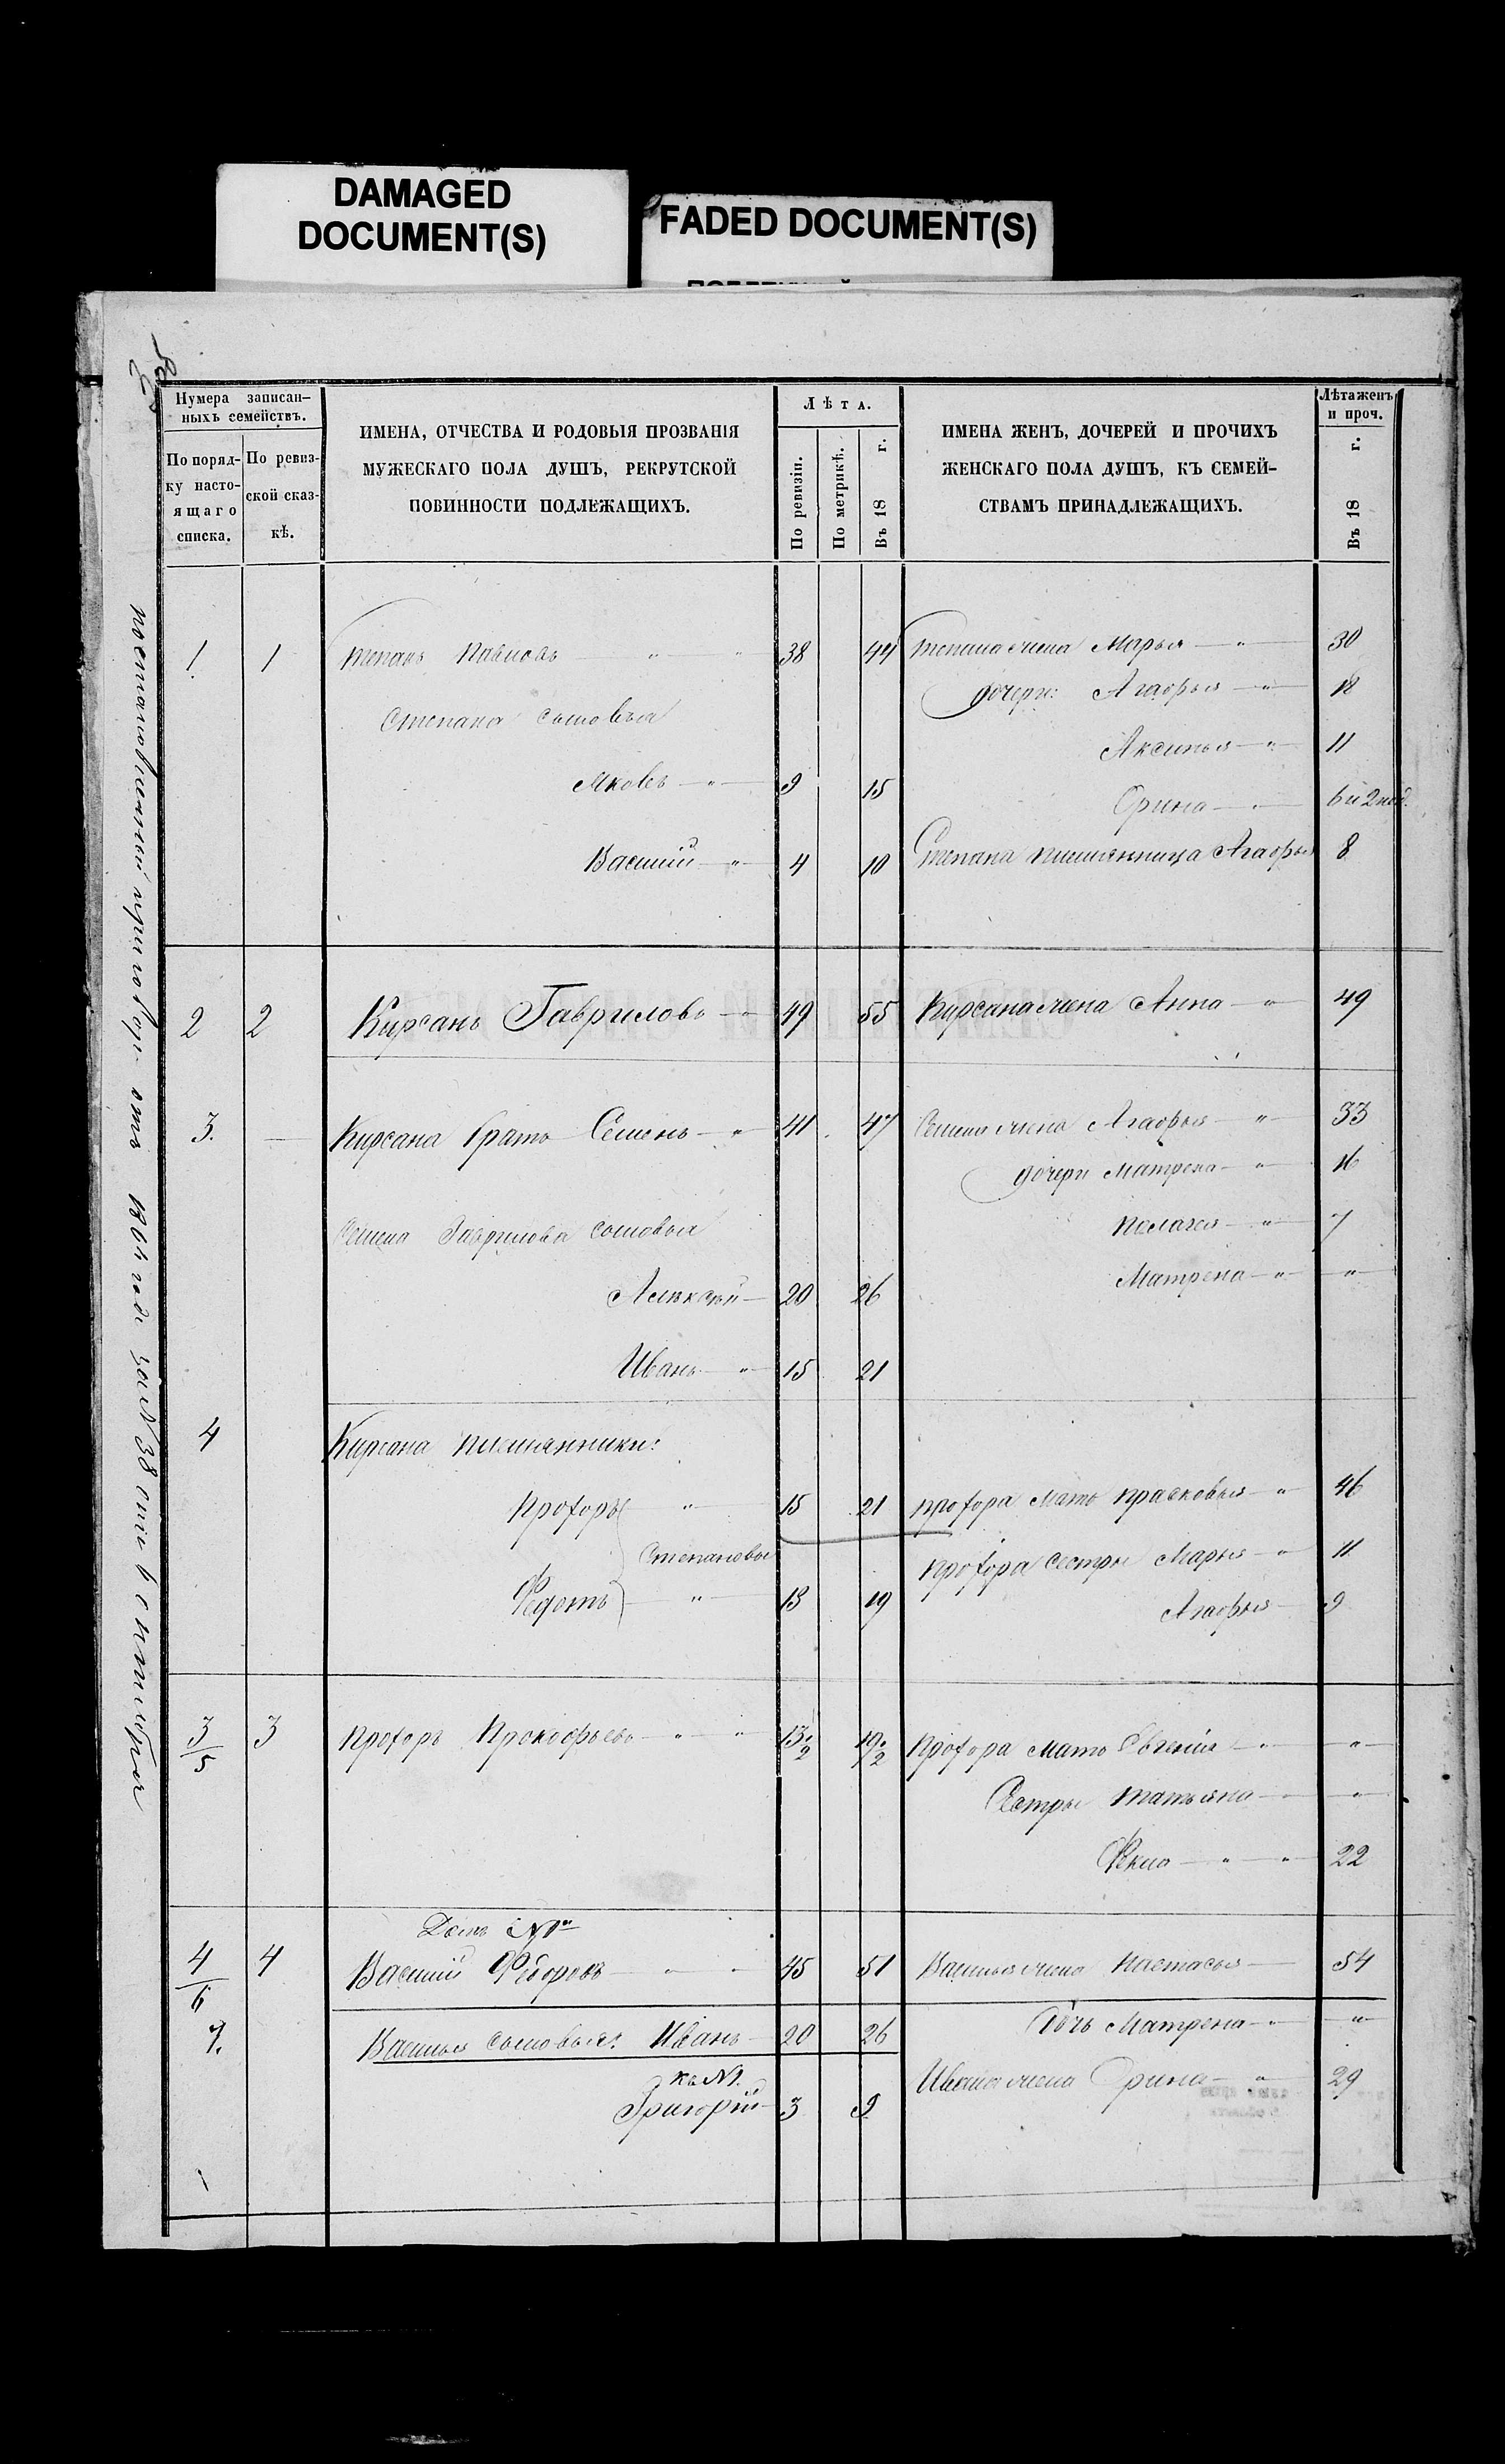 DAMAGED
DOCUMENT(S)
FADED DOCUMENT(S)
Нумера записан-
ныхъ семействъ.
По поряд-
ку насто-
ящаго
списка.
По ревиз-
ской сказ-
кѣ.
ИМЕНА, ОТЧЕСТВА И РОДОВЫЯ ПРОЗВАНІЯ
МУЖЕСКАГО ПОЛА ДУШЪ, РЕКРУТСКОЙ
ПОВИННОСТИ ПОДЛЕЖАЩИХЪ.
Лѣта.
По ревизіи.
По метрикѣ.
Въ 18 г.
ИМЕНА ЖЕНЪ, ДОЧЕРЕЙ И ПРОЧИХЪ
ЖЕНСКАГО ПОЛА ДУШЪ, КЪ СЕМЕЙ-
СТВАМЪ ПРИНАДЛЕЖАЩИХЪ.
Лѣта женъ
и проч.
Въ 18 г.
1 1 Степанъ Павловъ — " — " 38 44 Степана жена Марья — " — 30
дочери: Агафья — " — 12
Степана сыновья
Аксинья — " — 11
Яковъ — " — 9 15
Орина — " — 6 и 2 нед.
Василий — " — 4 10 Степана племянница Агафья 8
2 2 Кирсанъ Гавриловъ — " 49 55 Кирсана жена Анна — " 49
3. — Кирсана братъ Семенъ — " 41 47 Семена жена Агафья — " — 33
дочери Матрена — " — 16
Семена Гаврилова сыновья
Пелагея — " — 7
Алексѣй — 20 26
Матрена — " — "
Иванъ — " — 15 21
4 Кирсана племянники:
Прохоръ " 15 21 Прохора мать Прасковья — " 46
Степановы
Прохора сестры Марья — " 11
Федотъ — " — 13 19
Агафья — 9
3/5 3 Прохоръ Прокофьевъ — " — " 13½ 19½ Прохора мать Евгенія — " — "
Сестры Татьяна — "
Фекла — " — " 22
Домъ №
4/6 4 Василий Федоровъ — " — 45 51 Василья жена Настасья — 54
дочь Матрена — " — "
7. Василья сыновья: Иванъ — 20 26
Ивана жена Орина — " — 29
къ №1.
Григорій — 3 9
приговоръ отъ 1864 года за № 38 сентября